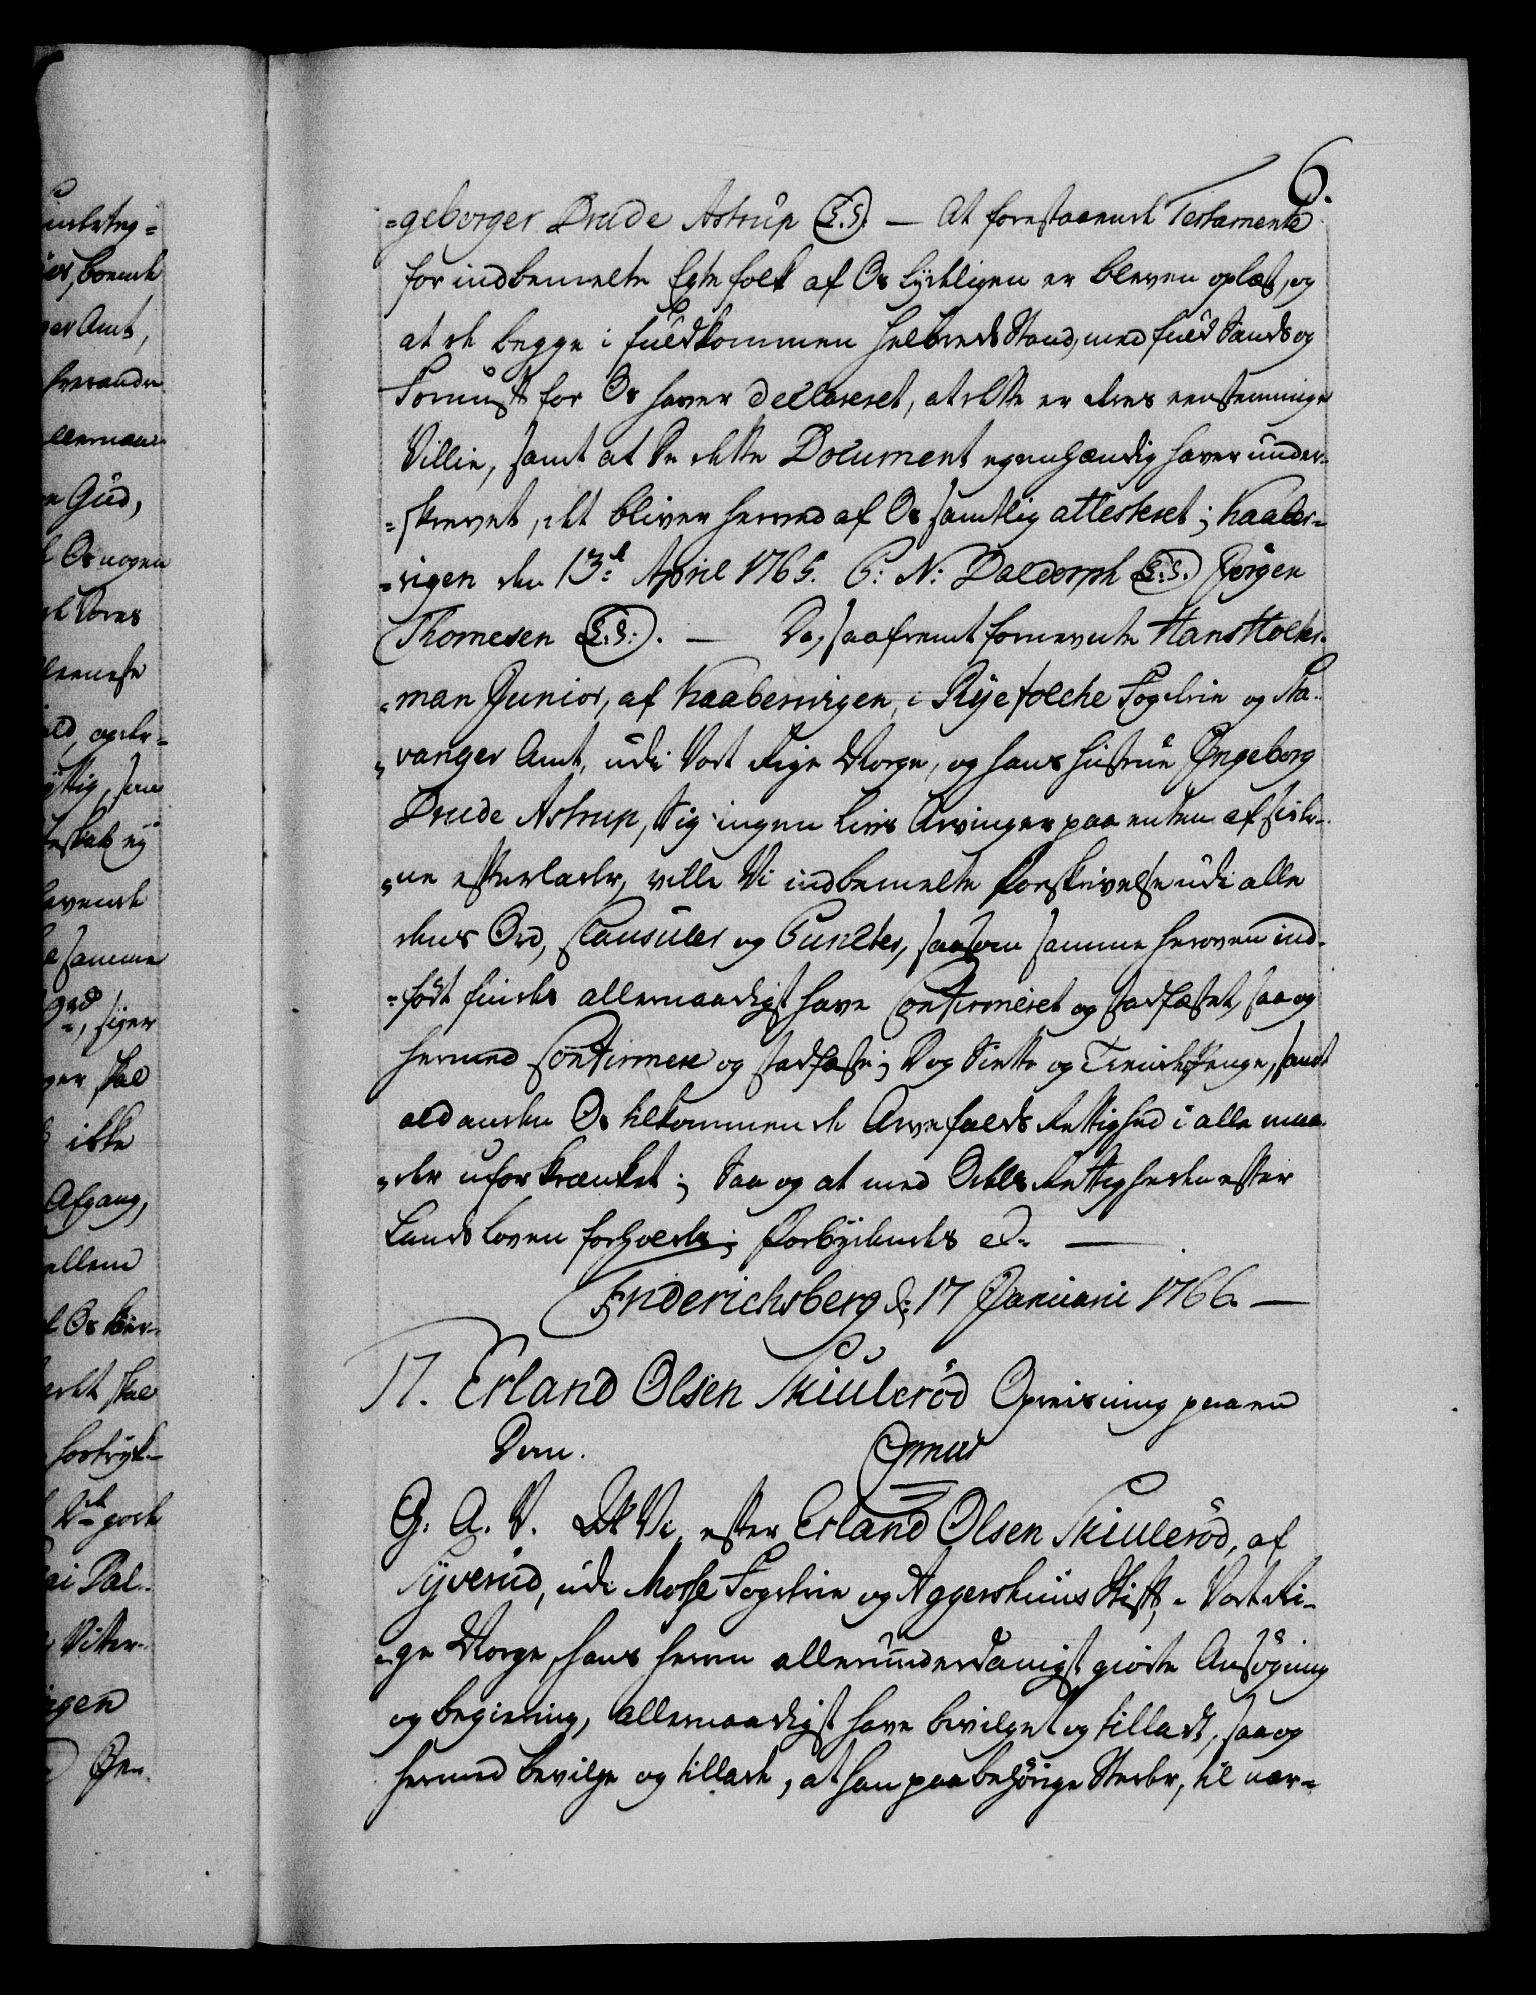 6.
=geborger Drude Astrup (L.S.) — At forestaaende Testamente
for indbemelte Egte folk af Os lydeligen er bleven oplæst, og
at de begge i fuldkommen Helbreds Stand, med fuld Sands og
Fornuft for Os haver declareret, at dette er deres eenstemmige
Villie, samt at De dette Document egenhændig haver under-
=skrevet, det bliver herved af Os samtlig attesteret; Kaaber-
=vigen den 13de April 1765. P: N: Daldorph (L.S.) Jørgen
Thomesen (L.S:). — Da, saafremt fornevnte Hans Holter-
=man Junior, af Kaabervigen, i Ryefolche Fogderie og Sta-
=vanger Amt, udi Vort Rige Norge, og hans Hustrue Ingeborg
Drude Astrup, Sig ingen Livs Arvinger paa enten af Sider-
=ne efterlader, ville Vi indbemelte Forskrivelse udi alle
dens Ord, Clausuler og Puncter, saasom samme heroven ind-
=ført findes allernaadigst have Confirmeret og stadfæstet, saa og
hermed Confirmere og stadfæste; Dog Siette og Tiende Penge, samt
ald anden Os tilkommende Arvefalds Rettighed i alle maa-
=der uforkrænket; Saa og at med Odels Rettigheden efter
Lands Loven forholdes; Forbydendes &c. —
Friderichsberg d: 17 Januarii 1766. —
17. Erland Olsen Skiulerød Opreisning paa en
Dom.
G. A. V. At Vi, efter Erland Olsen Skiulerød, af
Syverud, udi Mosse Fogderie og Aggershuus Stift, i Vort Ri-
=ge Norge, hans herom allerunderdanigst giorte Ansøgning
og begiering, allernaadigst have bevilget og tilladt, saa og
hermed bevilge og tillade, at han paa behørige Steder, til nær-